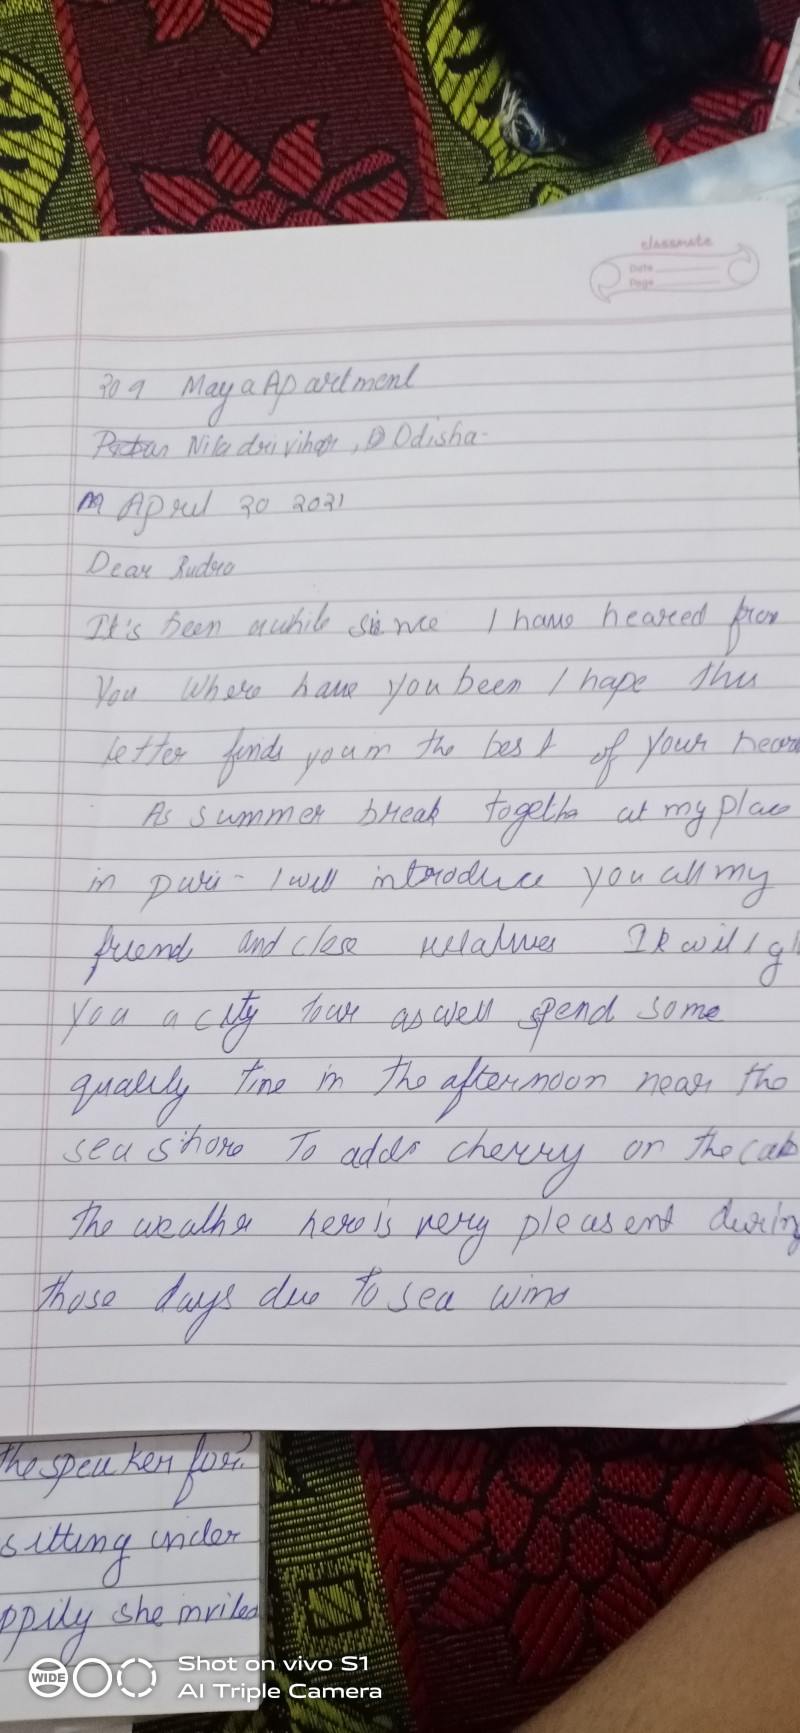 classmate
Date
Page
309 Maya Apartment
Niladrivihar, Odisha-
April 20 2021
Dear Rudra
It's been awhile since I have heared from
You Where have you been I hape this
letter finds you in the best of your
As summer break togethe at my place
in puri- I will introduce you all my
friend and close relatives I will
you a city tour as well spend some
qualily time in the afternoon near the
sea shore To adds cherry on the
the weather here is very pleasent during
those days due to sea wind
the speaker for?
sitting under
ppily she invited
WIDE
Shot on vivo S1
AI Triple Camera